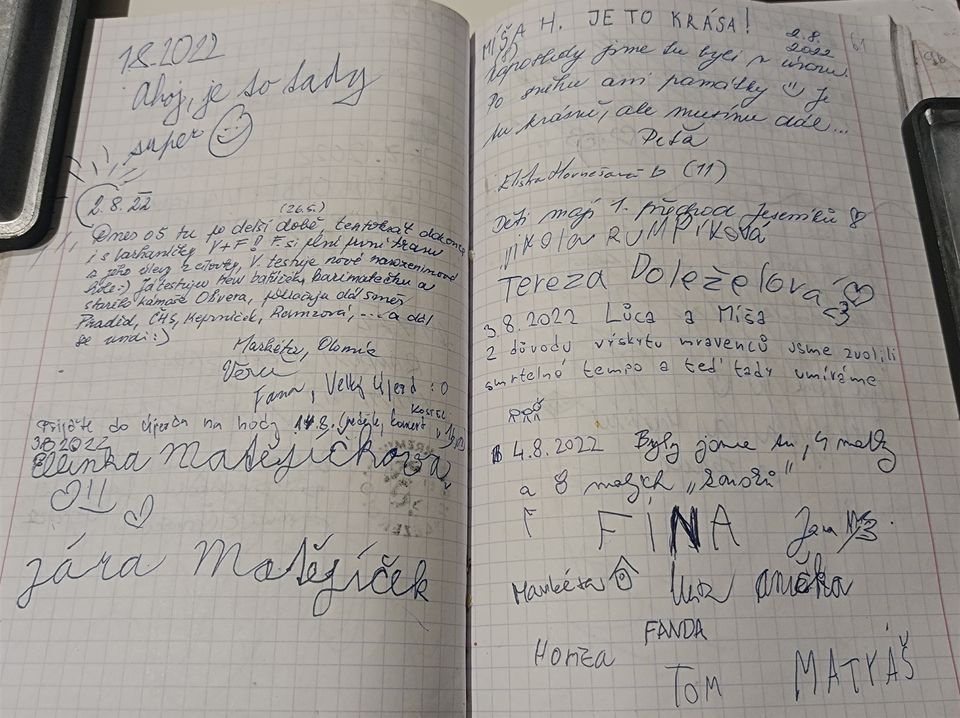 1.8.2022
Ahoj, je to tady
super
2.8.22
(26.5.)
Dnes os tu po delší době, tentokrát dokonce
i s varhaničky V+F! F si plní první
a jeho úlez z cítovky, V. testuje nové narozeninové
hole :) Já testuju new batůžek, karimatečku a
starého kamaráda Olivera, pokračuju dál směr
Praděd, CHS, Keprníček, Ramzová, ... a dál
se uvidí :)
Markéta, Olomóc
Veru
Fana, Velký Újezd :o
Přijďte do Újezda na hody 14.8.
3.8.2022
Elinka Matějíčková
jára Matějíček
MÍŠA H. JE TO KRÁSA!
61
2.8.
2022
Naposledy jsme tu byli v únoru.
Po sněhu ani památky Je
tu krásně, ale musíme dál...
Peťa
Eliška (11)
Děti mají 1. přechod Jeseníků
NIKOLA RUMPÍKOVÁ
Tereza Doleželová <3
3.8.2022 Lůca a Míša
Z důvodu výskytu mravenců jsme zvolili
smrtelné tempo a teď tady umíráme
4.8.2022 Byly jsme tu, 4 matky
a 8 malých
FÍNA Jara
Markéta anička
FANDA
Honza
TOM MATYÁŠ